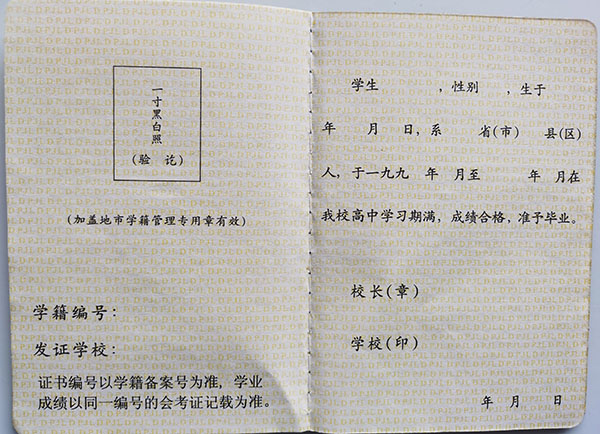 一寸黑白照
(验 讫)
(加盖地市学籍管理专用章有效)
学籍编号:
发证学校:
证书编号以学籍备案号为准，学业
成绩以同一编号的会考证记载为准。
学生 ，性别 ，生于
年 月 日，系 省(市) 县(区)
人，于一九九 年 月至 年 月在
我校高中学习期满，成绩合格，准予毕业。
校长(章)
学校(印)
年 月 日